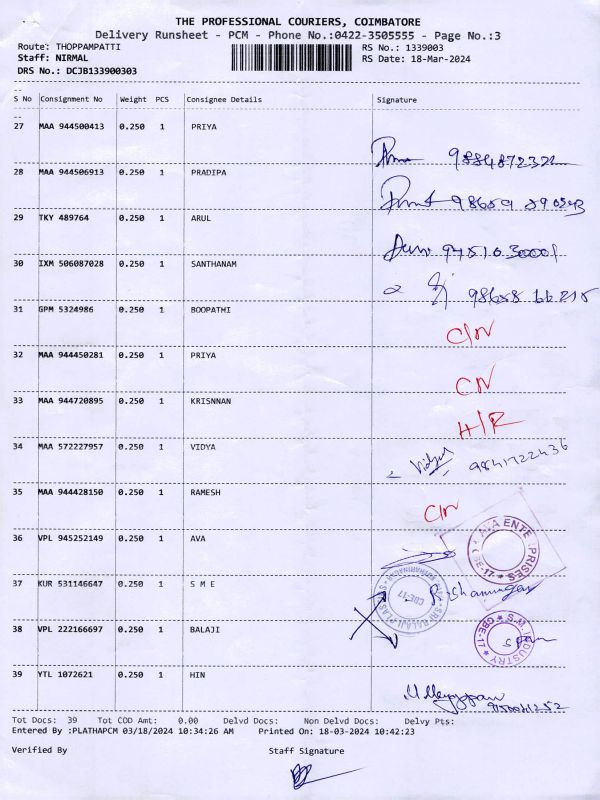 THE PROFESSIONAL COURIERS, COIMBATORE
Delivery Runsheet - PCM - Phone No.:0422-3505555 - Page No.:3
Route: THOPPAMPATTI RS No.: 1339003
Staff: NIRMAL RS Date: 18-Mar-2024
DRS No.: DCJB133900303
S No Consignment No Weight PCS Consignee Details Signature
27 MAA 944500413 0.250 1 PRIYA
28 MAA 944506913 0.250 1 PRADIPA
29 TKY 489764 0.250 1 ARUL
30 IXM 506087028 0.250 1 SANTHANAM
31 GPM 5324986 0.250 1 BOOPATHI C/N
32 MAA 944450281 0.250 1 PRIYA CN
33 MAA 944720895 0.250 1 KRISNNAN H/R
34 MAA 572227957 0.250 1 VIDYA Vidya 9841722436
35 MAA 944428150 0.250 1 RAMESH C/N
36 VPL 945252149 0.250 1 AVA
37 KUR 531146647 0.250 1 S M E
38 VPL 222166697 0.250 1 BALAJI
39 YTL 1072621 0.250 1 HIN
Tot Docs: 39 Tot COD Amt: 0.00 Delvd Docs: Non Delvd Docs: Delvy Pts:
Entered By :PLATHAPCM 03/18/2024 10:34:26 AM Printed On: 18-03-2024 10:42:23
Verified By Staff Signature